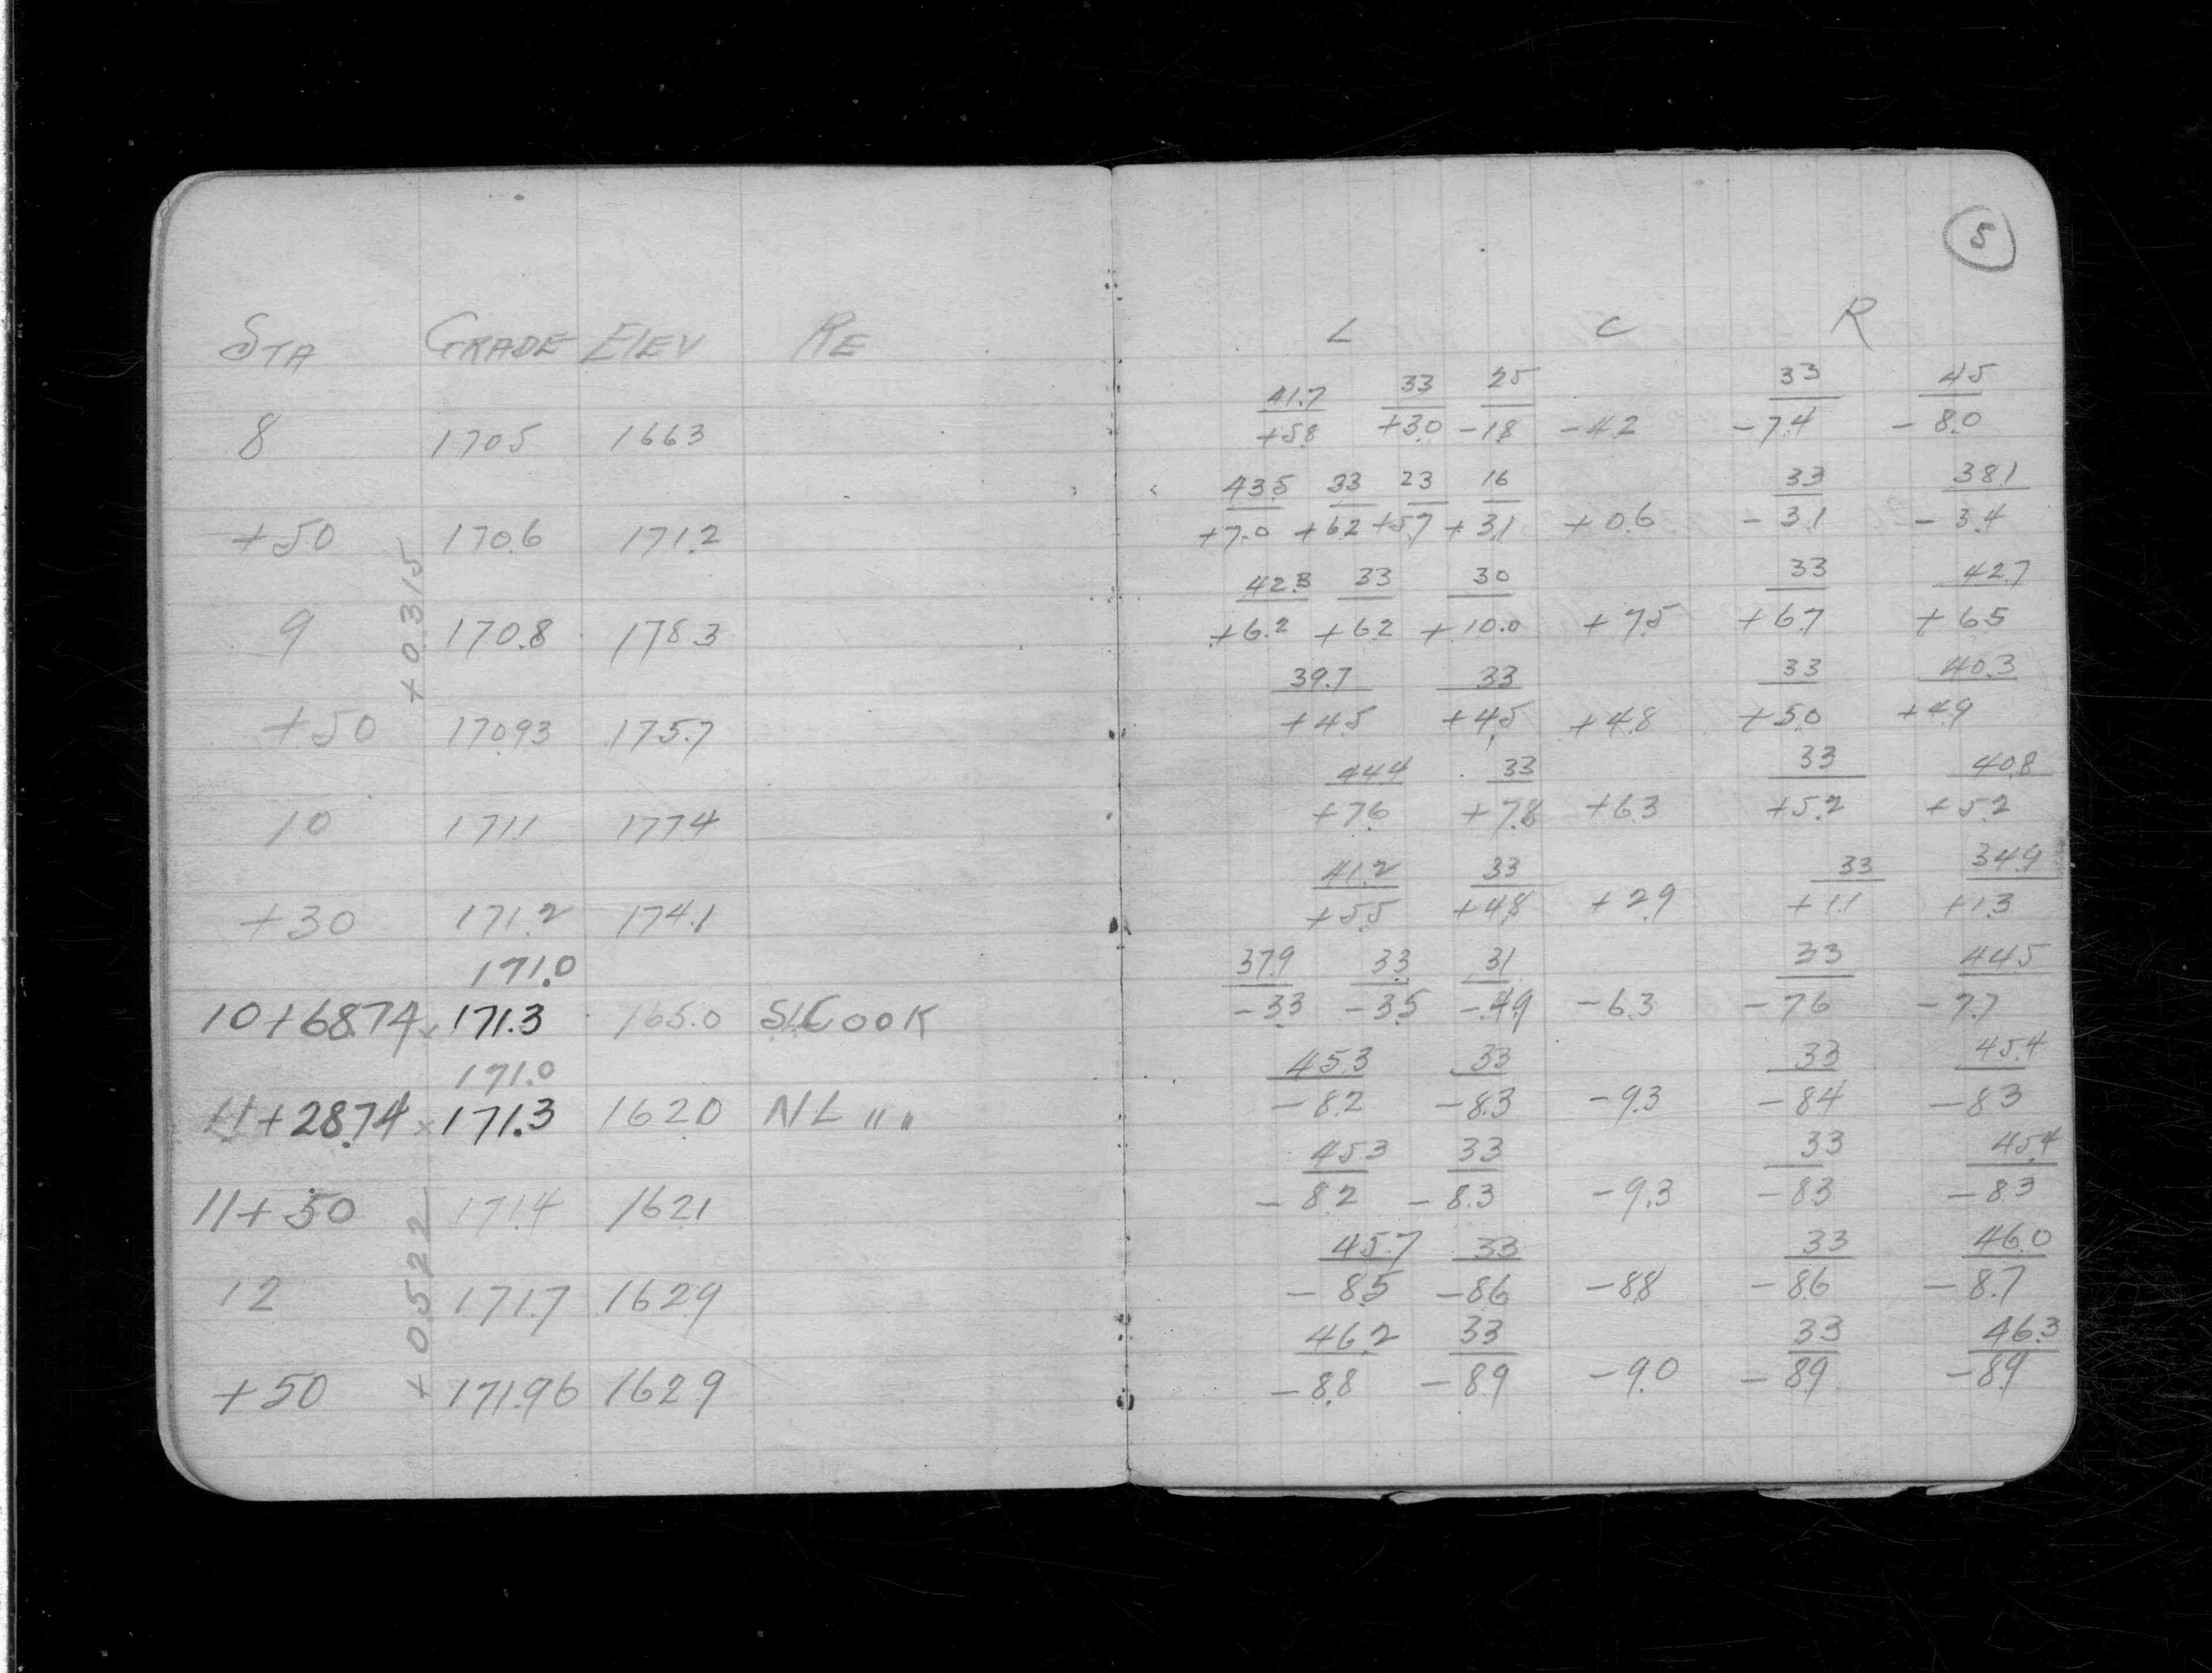 5
STA GRADE ELEV RE L C R
41.7 33 25 33 45
8 170.5 166.3 +5.8 +3.0 -1.8 -4.2 -7.4 -8.0
43.5 33 23 16 33 38.1
+50 170.6 171.2 +7.0 +6.2 +5.7 +3.1 +0.6 -3.1 -3.4
+0.315
42.3 33 30 33 42.7
9 170.8 178.3 +6.2 +6.2 +10.0 +7.5 +6.7 +6.5
39.7 33 33 40.3
+50 170.93 175.7 +4.5 +4.5 +4.8 +5.0 +4.9
44.4 33 33 40.8
10 171.1 177.4 +7.6 +7.8 +6.3 +5.2 +5.2
41.2 33 33 34.9
+30 171.2 174.1 +5.5 +4.8 +2.9 +1.1 +1.3
171.0 37.9 33 31 33 44.5
10+68.74 x 171.3 165.0 SLCOOK -3.3 -3.5 -4.9 -6.3 -7.6 -7.7
171.0 45.3 33 33 45.4
11+28.74 x 171.3 162.0 NL " " -8.2 -8.3 -9.3 -8.4 -8.3
45.3 33 33 45.4
11+50 171.4 162.1 -8.2 -8.3 -9.3 -8.3 -8.3
+0.522
45.7 33 33 46.0
12 171.7 162.9 -8.5 -8.6 -8.8 -8.6 -8.7
46.2 33 33 46.3
+50 171.96 162.9 -8.8 -8.9 -9.0 -8.9 -8.9